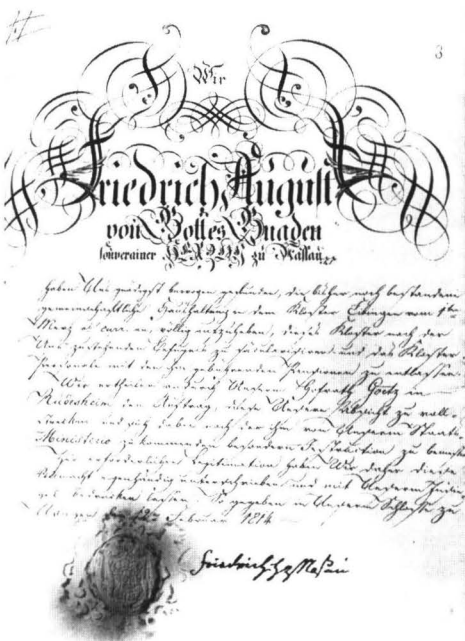 3
Wir
Friedrich August
von Gottes Gnaden
souverainer HERZOG zu Nassau
haben Uns gnädigst bewogen gefunden, die bisher noch bestandene
gemeinschaftliche Haushaltung in dem Kloster Eibingen vom 1ten
Merz a. curr. an, völlig aufzuheben, dieses Kloster nach der
Uns zustehenden Befugniß zu säcularisiren und das Kloster
Personale mit den ihm gebührenden Pensionen zu entlassen.
Wir ertheilen andurch Unserm Hofrath Götz in
Rüdesheim den Auftrag, diese Unsere Absicht zu voll-
ziehen und sich dabei nach der ihm von Unserm Staats-
Ministerio zukommenden besondern Instruction zu
Zur erforderlichen Legitimation haben Wir daher dieses
eigenhändig unterschrieben und mit Unserm Insie-
gel bedrucken lassen. So gegeben in Unserm Schlosse zu
den Februar 1814
Friedrich Hz Nassau